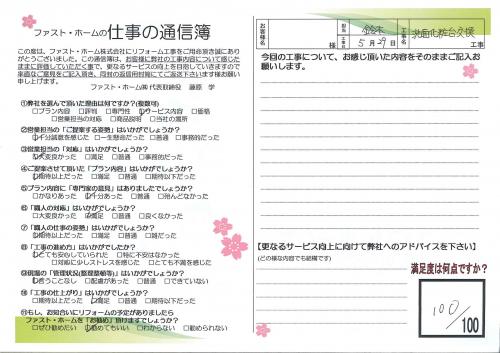 ファスト・ホームの仕事の通信簿
この度は、ファスト・ホーム株式会社にリフォーム工事をご用命頂き誠にあり
がとうございました。この通信簿は、お客様に弊社の工事内容について感じた
ままに評価していただく事で、更なるサービスの向上を目指していきますので
率直なご意見をご記入頂き、同封の返信用封筒にてご返送下さいます様お願い
申し上げます。
ファスト・ホーム㈱ 代表取締役 藤原 学
①弊社を選んで頂いた理由は何ですか?(複数可)
□プラン内容 □評判 □専門性 □サービス内容 □価格
□営業担当者の対応 □商品説明 □当社の場所
②営業担当の「ご提案する姿勢」はいかがでしょうか?
□十分誠意を感じた □一生懸命だった □普通 □事務的だった
③営業担当の「対応」はいかがでしょうか?
□大変良かった □満足 □普通 □事務的だった
④ご提案させて頂いた「プラン内容」はいかがでしょうか?
□期待以上だった □満足 □普通 □期待以下だった
⑤プラン内容に「専門家の意見」はありましたでしょうか?
□かなりあった □十分あった □普通 □殆んどなかった
⑥「職人の対応」はいかがでしょうか?
□大変良かった □満足 □普通 □良くなかった
⑦「職人の仕事の姿勢」はいかがでしょうか?
□期待以上だった □満足 □普通 □雑だった
⑧「工事の進め方」はいかがでしたか?
□とても安心していられた □特に不安はなかった
□対応に少しストレスを感じた □とても不満を感じた
⑨現場の「管理状況(整理整頓等)」はいかがでしょうか?
□言うことなし □配慮があった □普通 □できていない
⑩「工事の仕上がり」はいかがでしょうか?
□期待以上だった □満足 □普通 □期待以下だった
⑪もし、お知合いにリフォームの予定がありましたら
ファスト・ホームを「お勧め」頂けますでしょうか?
□ぜひ勧めたい □勧めてもいい □わからない □勧められない
お客様名 様 担当 鈴木 工事名 洗面化粧台交換
工期 5月29日 工事
今回の工事について、お感じ頂いた内容をそのままご記入お
願いします。
【更なるサービス向上に向けて弊社へのアドバイスを下さい】
(どの様な内容でも結構です)
満足度は何点ですか?
100/100